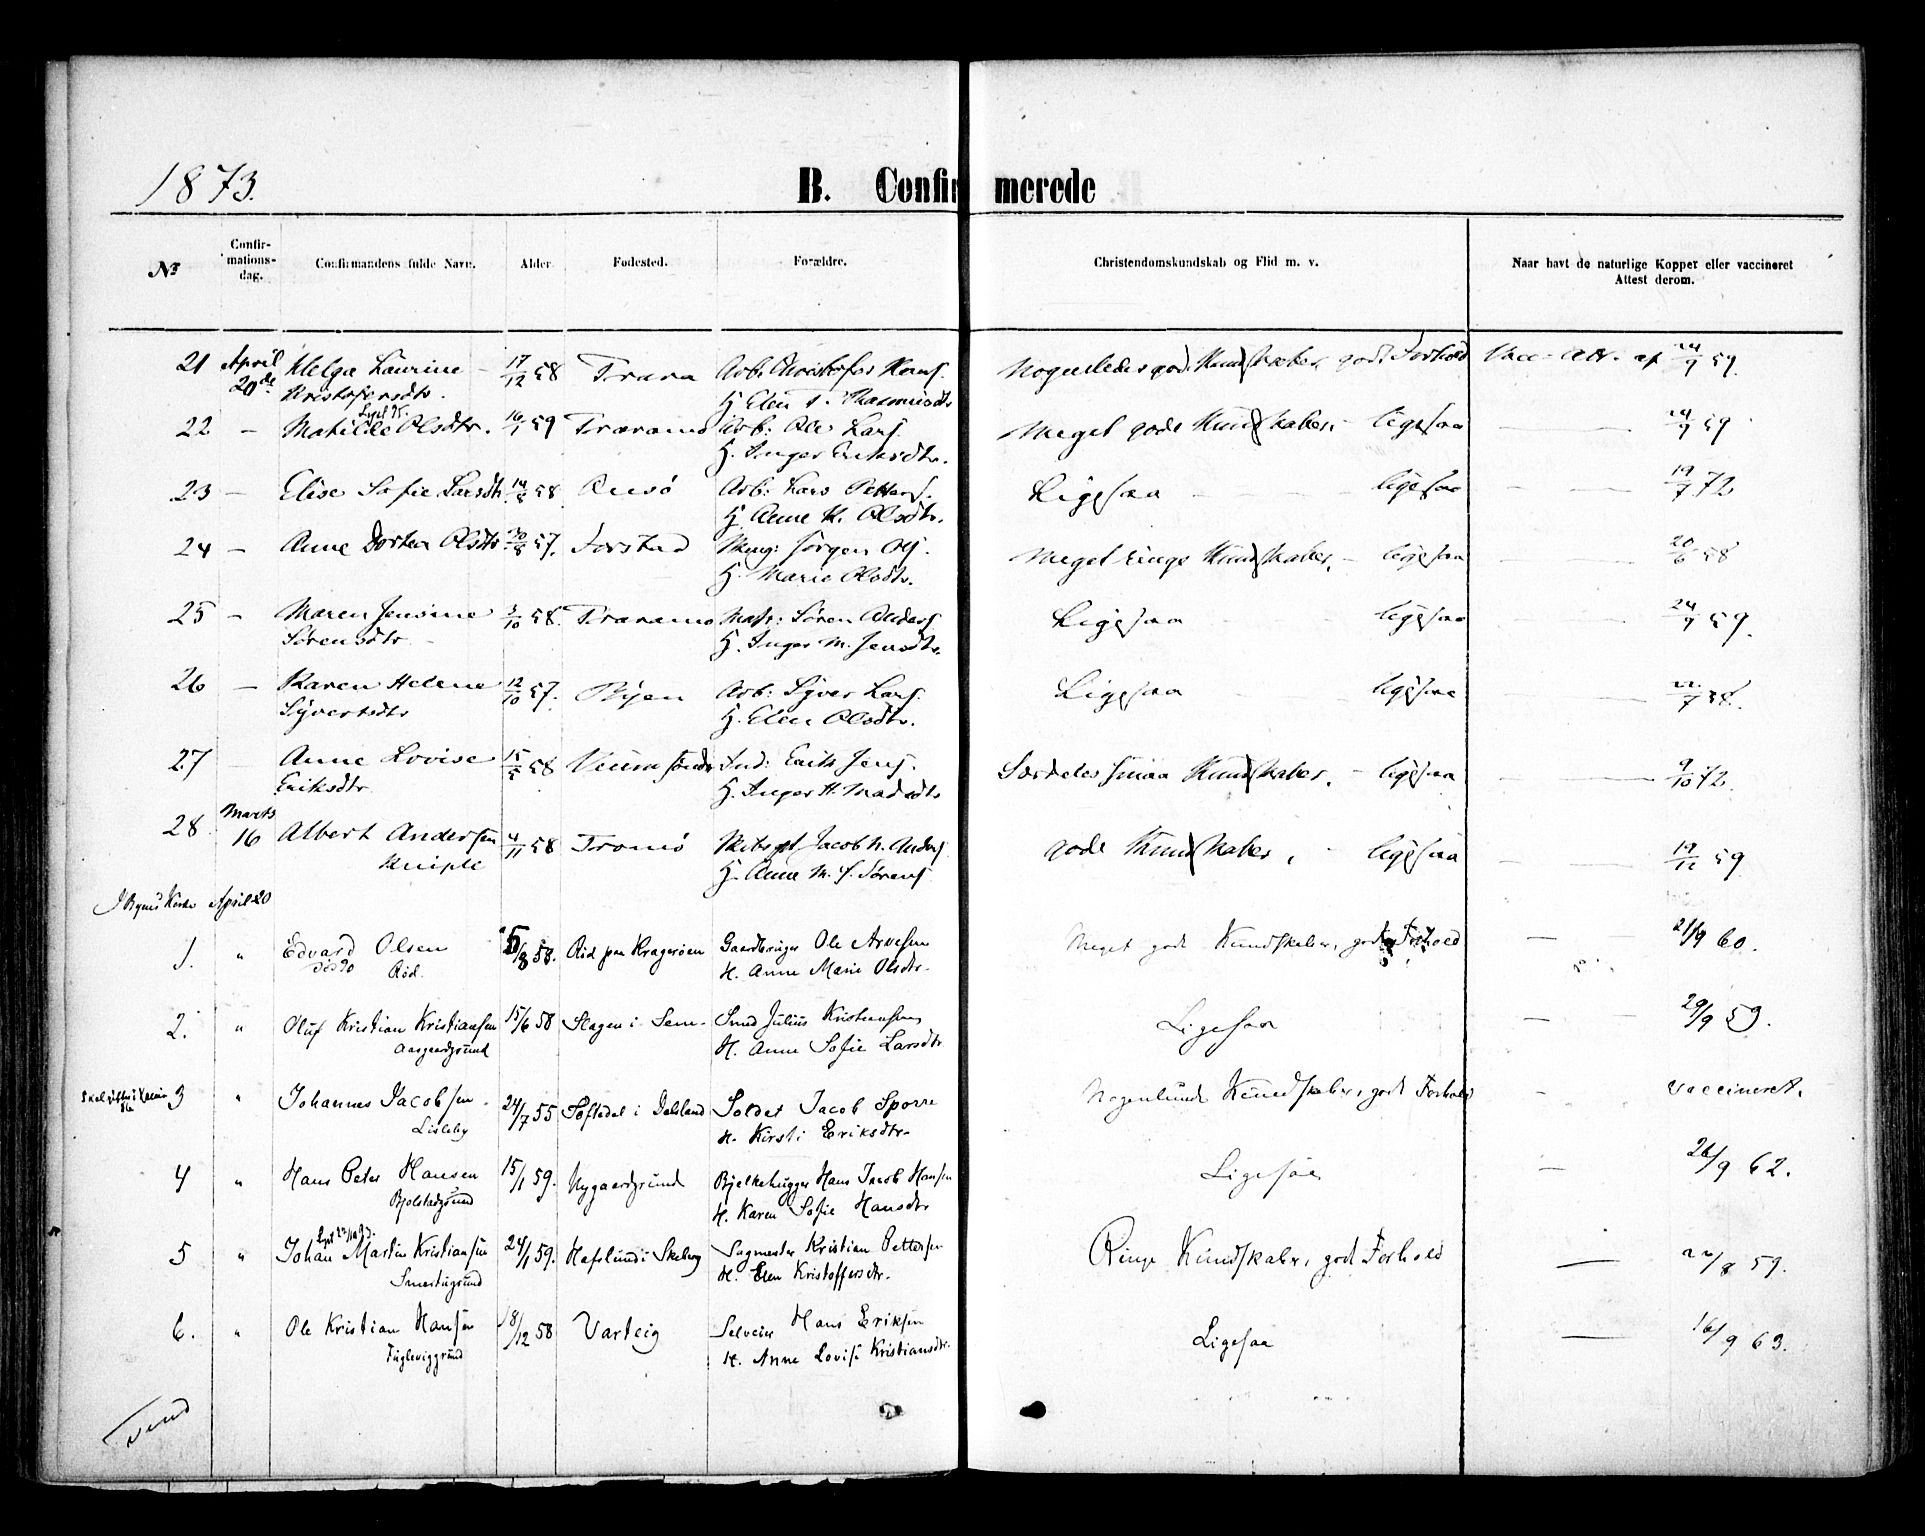 1873.
B. Confirmerede
No
Confirmationsdag.
Confirmandens fulde Navn.
Alder
Fødested.
Forældre.
Christendomskundskab og Flid m. v.
Naar havt de naturlige Kopper eller vaccineret
Attest derom.
21 April 20de Helga Laurine 17/12 58 Trara Arb: Kristofer Hans. Nogenledes gode Kundskaber, godt Forhold Vacc. Att. af 24/9 59.
Kristofersdtr. H. Elen
22 — Matilde Olsdtr. 16/1 59 Traramo Arb: Ole Lars. Meget gode Kundskaber, — ligesaa — — 24/9 59
H. Inger
23 — Elise Sofie Larsdtr. 14/8 58 Arb: Lars Petters. Ligesaa — ligesaa — — 19/7 72
H. Anne K. Olsdtr.
24 — Anne Dortea Olsdtr. 30/8 57. Torstad Jørgen Ols. Meget ringe Kundskaber, — ligesaa — — 20/6 58
H. Marie Olsdtr.
25 — Maren Jensine 3/10 58. Traramo Matr: Søren Anders. Ligesaa ligesaa — — 24/9 59.
Sørensdtr. H. Inger M. Jensdtr.
26 — Karen Helene 12/10 57. Byen Arb: Syver Lars. Ligesaa ligesaa — — 22/7 58.
Syversdtr. H. Elen Olsdtr.
27 — Anne Lovise 15/5 58 Veum søndr. Ind: Erik Jens. Særdeles smaa Kundskaber, — ligesaa — — 9/10 72.
Eriksdtr. H. Inger H. Madsdtr.
28. Marts 16 Albert Andersen 4/11 58 Tromø Jacob N. Anders. gode Kundskaber, — ligesaa — — 19/12 59
Kniple H. Anne M. S. Sørens.
I Byens Kirke April 20
1. " Edvard Olsen 5/8 58. Rød paa Kragerøen Gaardbruger Ole Arvesen Meget gode Kundskaber, godt Forhold — — 21/9 60.
Rød. H. Anne Marie Olsdtr.
2. " Oluf Kristian Kristiansen 15/6 58 Slagen i Sem Smed Julius Kristiansen Ligesaa — — 29/9 59.
Aasgaardgrund H. Anne Sofie Larsdtr
3 " Johannes Jacobsen 24/7 55 i Dalsland Soldat Jacob Sporre Nogenlunde Kundskaber, godt Forhold — vaccineret.
Lisleby H. Kirsti Eriksdtr.
4 " Hans Peter Hansen 15/1 59. Nygaardgrund Bjelkehugger Hans Jacob Hansen Ligesaa — 26/9 62.
Bjølstadgrund H. Karen Sofie Hansdtr
5 " Johan Martin Kristiansen 24/1 59. Hafslund i Skeberg Sagmester Kristian Pettersen Ringe Kundskaber, godt Forhold — 22/8 59.
Smertugrund H. Elen Kristoffersdtr.
6. " Ole Kristian Hansen 18/12 58 Varteig Selveier Hans Eriksen Ligesaa — 16/9 63.
Fugleviggrund H. Anne Lovise Kristiansdtr.
Vend